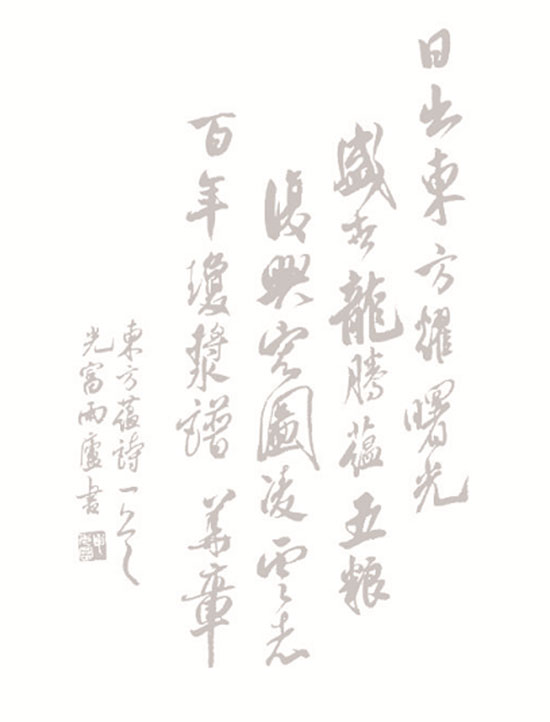 日出東方耀曙光
盛世龍騰蘊五粮
復興宏圖凌雲志
百年瓊漿譜華章
東方蘊詩一首之
光富雨廬書